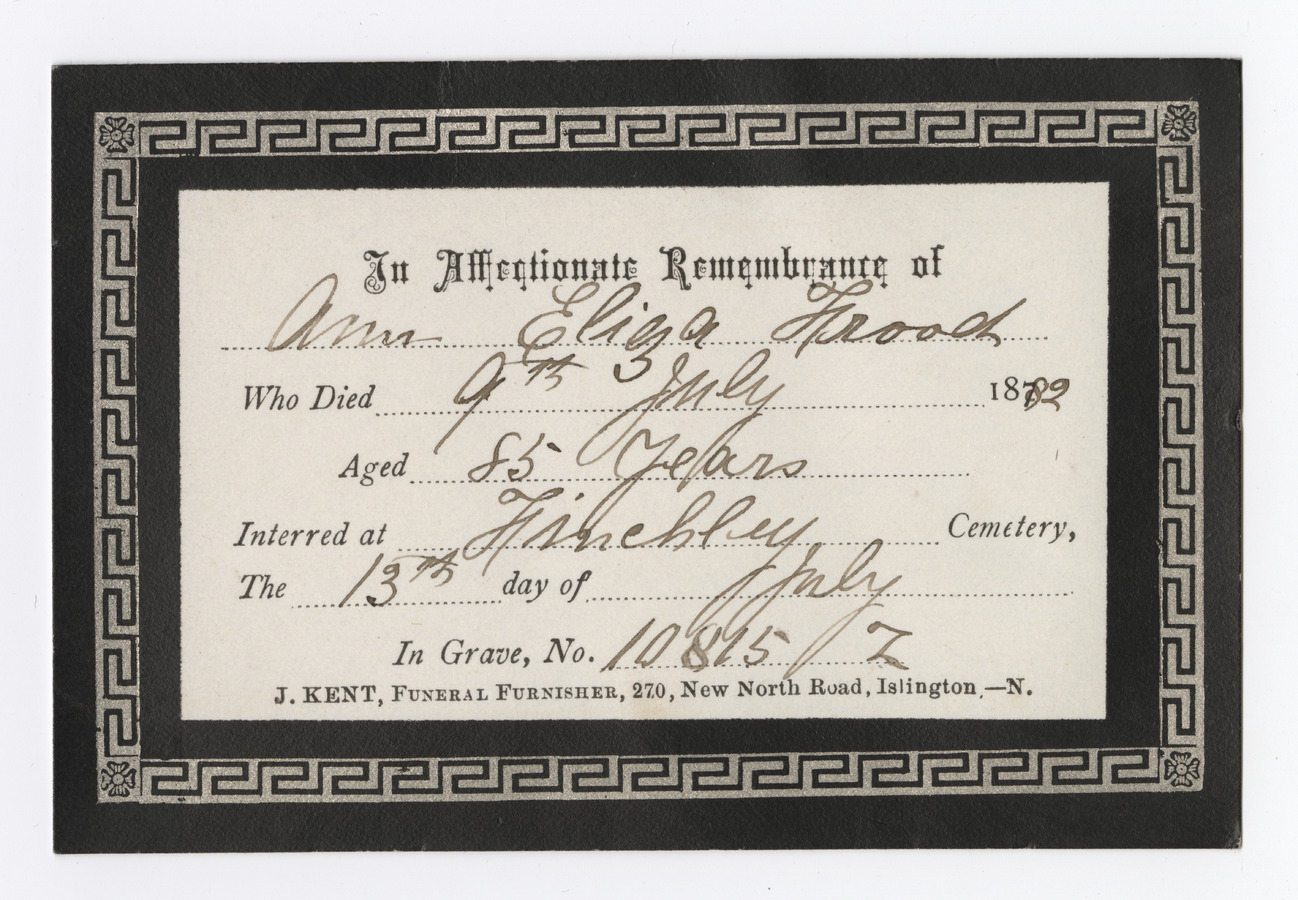 In Affectionate Remembrance of
Ann Eliza Frood
Who Died 9th July 1882
Aged 85 Years
Interred at Finchley Cemetery,
The 13th day of July
In Grave, No. 10815 Z
J. KENT, FUNERAL FURNISHER, 270, New North Road, Islington,—N.